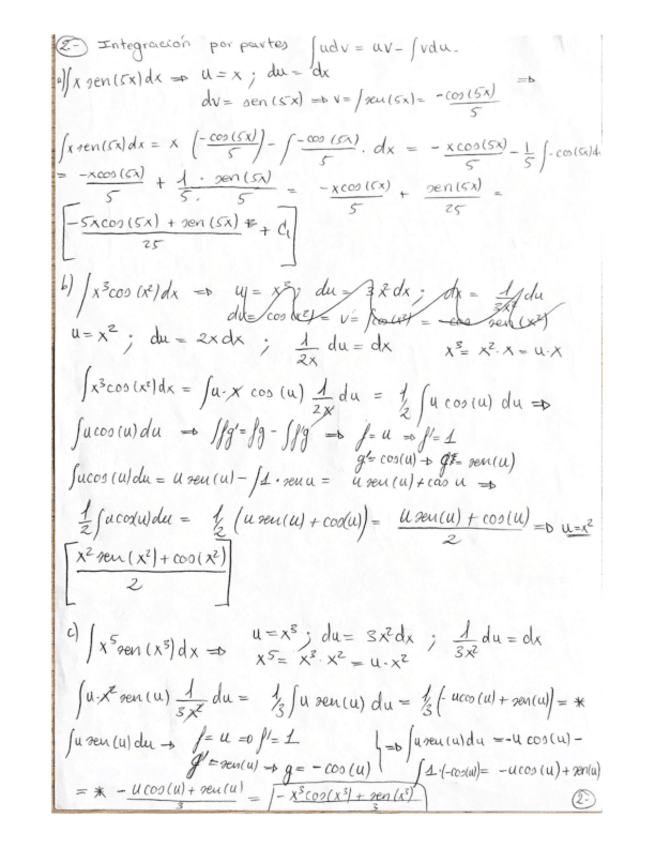 2.- Integración por partes ∫udv = uv - ∫vdu.
a) ∫x sen(5x)dx ⇒ u = x ; du = dx
dv = sen(5x) ⇒ v = ∫sen(5x) = -cos(5x)/5 ⇒
∫x sen(5x)dx = x (-cos(5x)/5) - ∫ -cos(5x)/5 . dx = - xcos(5x)/5 - 1/5 ∫-cos(5x)d
= -xcos(5x)/5 + 1/5 . sen(5x)/5 = -xcos(5x)/5 + sen(5x)/25 =
[-5xcos(5x) + sen(5x)/25 + C]
b) ∫x³cos(x²)dx ⇒ u = x³; du = 3x²dx ; dx = 1/3x² du
dv = cos(x²) = v =
u = x² ; du = 2xdx ; 1/2x du = dx x³ = x².x = u.x
∫x³cos(x²)dx = ∫u.x cos(u) 1/2x du = 1/2 ∫u cos(u) du ⇒
∫ucos(u)du → ∫fg' = fg - ∫f'g ⇒ f = u ⇒ f' = 1
g' = cos(u) → g = sen(u)
∫ucos(u)du = u sen(u) - ∫1.sen u = u sen(u) + cos u ⇒
1/2 ∫ucos(u)du = 1/2 (u sen(u) + cos(u)) = u sen(u) + cos(u)/2 ⇒ u=x²
[x² sen(x²) + cos(x²)/2]
c) ∫x⁵sen(x³)dx ⇒ u = x³ ; du = 3x²dx ; 1/3x² du = dx
x⁵ = x³.x² = u.x²
∫u.x² sen(u) 1/3x² du = 1/3 ∫u sen(u) du = 1/3 (-ucos(u) + sen(u)) = *
∫u sen(u)du → f = u ⇒ f' = 1 } ⇒ ∫u sen(u)du = -u cos(u) -
g' = sen(u) → g = -cos(u) ∫1.(-cos(u)) = -ucos(u) + sen(u)
= * -ucos(u) + sen(u)/3 = [-x³cos(x³) + sen(x³)/3] 2-